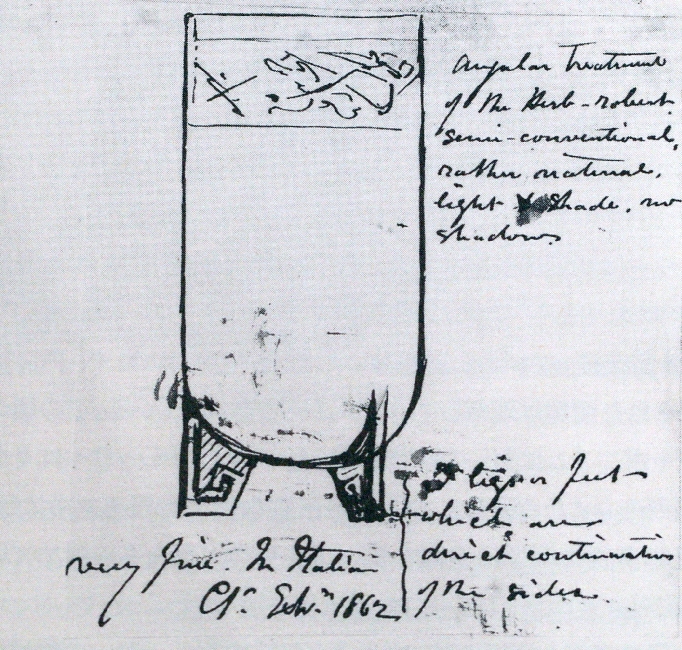 Angular treatment
of the Herb-robert
semi-conventional,
rather natural,
light & shade. no
shadows
feet
which are
direct continuation
of the sides.
very fine. In Italian
Ct. Exhn. 1862